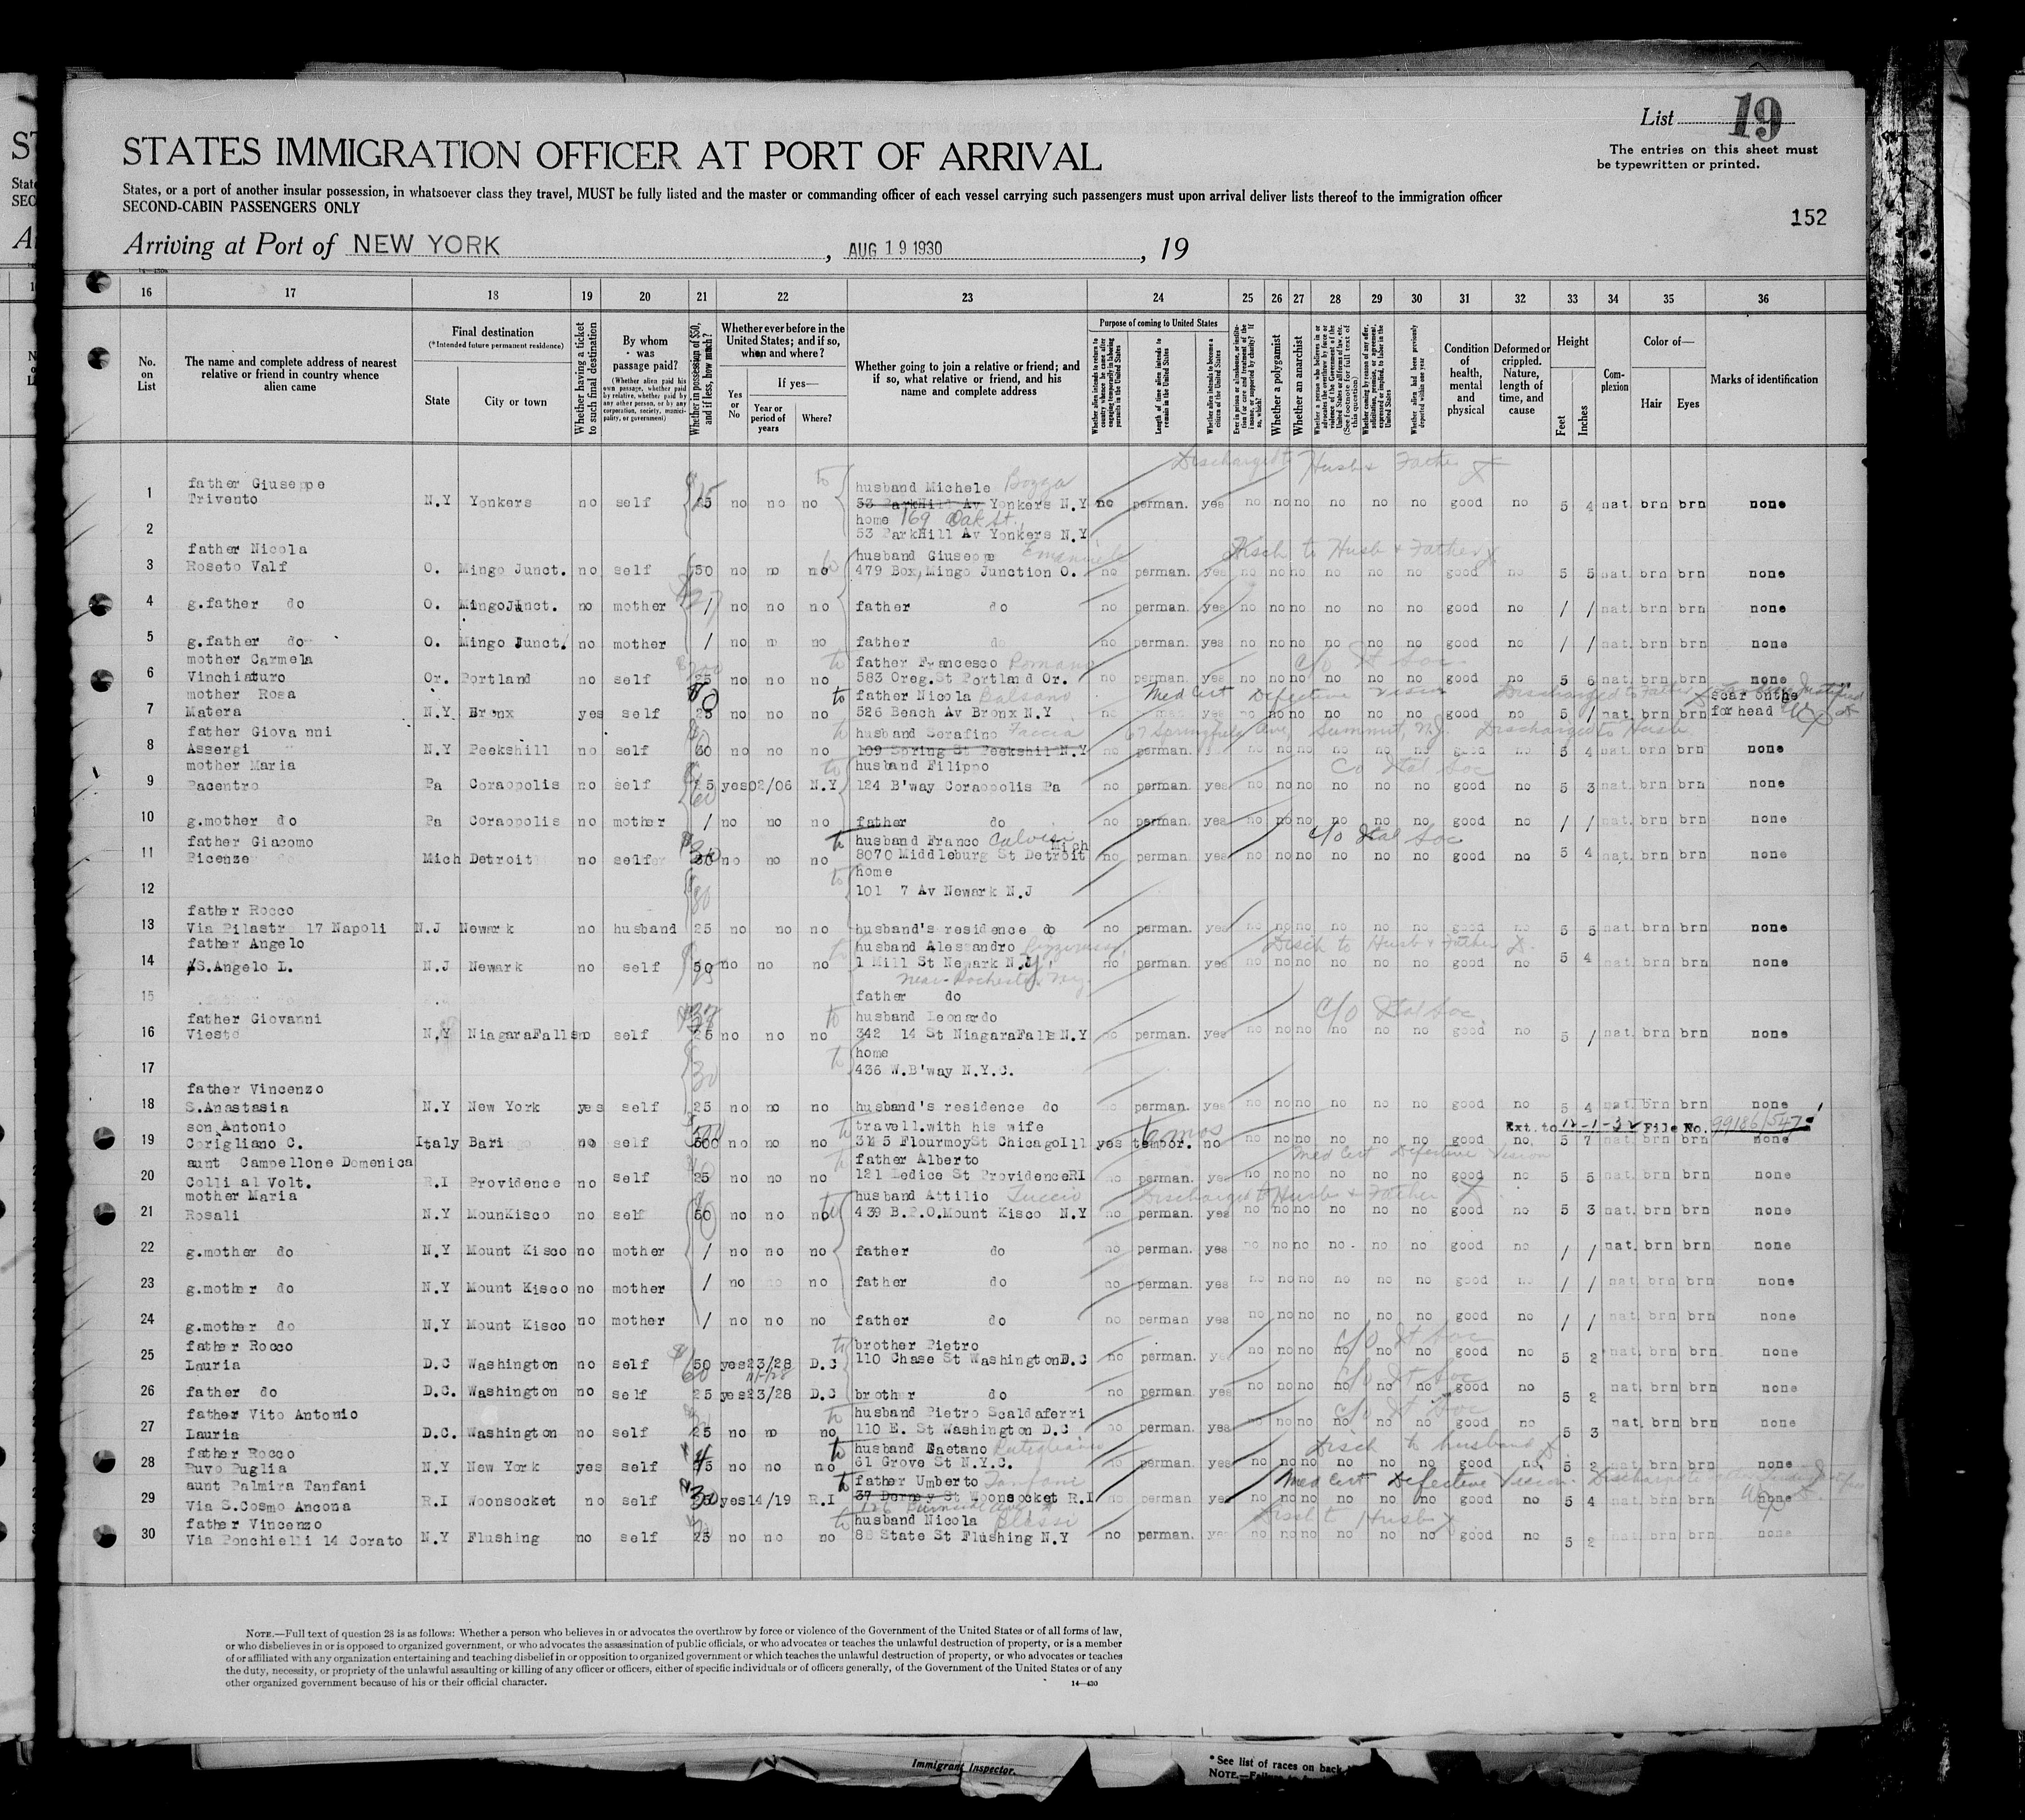 List 19
The entries on this sheet must
be typewritten or printed.
STATES IMMIGRATION OFFICER AT PORT OF ARRIVAL
States, or a port of another insular possession, in whatsoever class they travel, MUST be fully listed and the master or commanding officer of each vessel carrying such passengers must upon arrival deliver lists thereof to the immigration officer
SECOND-CABIN PASSENGERS ONLY
152
Arriving at Port of NEW YORK, AUG 19 1930, 19
16 17 18 19 20 21 22 23 24 25 26 27 28 29 30 31 32 33 34 35 36
No. on List
The name and complete address of nearest relative or friend in country whence alien came
Final destination
(*Intended future permanent residence)
State
City or town
Whether having a ticket to such final destination
By whom was passage paid?
(Whether alien paid his own passage, whether paid by relative, whether paid by any other person, or by any corporation, society, municipality, or government)
Whether in possession of $50, and if less, how much?
Whether ever before in the United States; and if so, when and where?
Yes or No
If yes—
Year or period of years
Where?
Whether going to join a relative or friend; and if so, what relative or friend, and his name and complete address
Purpose of coming to United States
Length of time alien intends to remain in the United States
Whether alien intends to become a citizen of the United States
Whether a polygamist
Whether an anarchist
Condition of health, mental and physical
Deformed or crippled. Nature, length of time, and cause
Height
Feet
Inches
Complexion
Color of—
Hair
Eyes
Marks of identification
Discharged to Husb & Father
1 father Giuseppe Trivento N.Y Yonkers no self 25 no no no husband Michele Bozza 53 ParkHill Av Yonkers N.Y no perman. yes no no no no no no good no 5 4 nat brn brn none
2 home 169 Oak St. 53 ParkHill Av Yonkers N.Y
Disch to Husb & Father
3 father Nicola Roseto Valf O. Mingo Junct. no self 50 no no no husband Giuseppe Emanuele 479 Box, Mingo Junction O. no perman. yes no no no no no no good no 5 5 nat. brn brn none
4 g.father do O. MingoJunct. no mother / no no no father do no perman. yes no no no no no no good no / / nat. brn brn none
5 g.father do O. Mingo Junct. no mother / no no no father do no perman. yes no no no no no no good no / / nat. brn brn none
6 mother Carmela Vinchiaturo Or. Portland no self 25 no no no father Francesco Romano 583 Oreg. St Portland Or. no perman. yes no no no no no no good no 5 6 nat. brn brn none
c/o It Soc.
7 mother Rosa Matera N.Y. Bronx yes self 25 no no no to father Nicola Balsano 526 Beach Av Bronx N.Y no yes no no no no no no good no 5 / nat. brn brn scar onthe forhead
Med Cert Defective vision Discharged to Father
8 father Giovanni Assergi N.Y Peekshill no self 60 no no no husband Serafino Faccia 109 Spring St Peekshil N.Y no perman. no no no no no no good no 5 4 nat brn brn none
67 Springfield Ave, Summit, N.J. Discharged to Husb
9 mother Maria Pacentro Pa Coraopolis no self 25 yes 02/06 N.Y husband Filippo 124 B'way Coraopolis Pa no perman. yes no no no no no no good no 5 3 nat. brn brn none
c/o Ital Soc
10 g.mother do Pa Coraopolis no mother / no no no father do no perman. yes no no no no no no good no / / nat. brn brn none
11 father Giacomo Picenze Mich Detroit no self no no no husband Franco Calvisi 8070 Middleburg St Detroit Mich no perman. yes no no no no no no good no 5 4 nat. brn brn none
c/o Ital Soc
12 home 101 7 Av Newark N.J
13 father Rocco Via Pilastr 17 Napoli N.J Newark no husband 25 no no no husband's residence do no perman. yes no no no no no no good no 5 5 nat. brn brn none
Disch to Husb & Father
14 father Angelo S.Angelo L. N.J Newark no self 50 no no no husband Alessandro 1 Mill St Newark N.J no perman. yes no no no no no no good no 5 4 nat. brn brn none
near Rochester, N.Y.
15 father do
16 father Giovanni Vieste N.Y NiagaraFalls no self 25 no no no husband Leonardo 342 14 St NiagaraFalls N.Y no perman. yes no no no no no no good no 5 / nat. brn brn none
c/o Ital Soc.
17 home 436 W.B'way N.Y.C.
18 father Vincenzo S.Anastasia N.Y New York yes self 25 no no no husband's residence do no perman. yes no no no no no no good no 5 4 nat. brn brn none
19 son Antonio Corigliano C. Italy Bari no self 500 no no no travell.with his wife 3145 FlourmoySt ChicagoIll yes tempor. no no no no no no no good no. 5 7 nat brn brn none
6 mos Ext. to 12-1-32 File No. 99186/547
20 aunt Campellone Domenica Colli al Volt. R.I Providence no self 25 no no no father Alberto 121 Ledice St ProvidenceRI no perman. yes no no no no no no good no 5 5 nat. brn brn none
Med Cert Defective Vision
21 mother Maria Rosali N.Y MounKisco no self 50 no no no husband Attilio Tuccio 439 B.P.O.Mount Kisco N.Y no perman. yes no no no no no no good no 5 3 nat. brn brn none
Discharged to Husb & Father
22 g.mother do N.Y Mount Kisco no mother / no no no father do no perman. yes no no no no no no good no / / nat. brn brn none
23 g.mother do N.Y Mount Kisco no mother / no no father do no perman. yes no no no no no no good no / / nat. brn brn none
24 g.mother do N.Y Mount Kisco no mother / no no no father do no perman yes no no no no no no good no / / nat. brn brn none
25 father Rocco Lauria D.C Washington no self 50 yes 23/28 D.C brother Pietro 110 Chase St WashingtonD.C no perman. yes no no no no no no good no 5 2 nat. brn brn none
c/o It Soc
26 father do D.C. Washington no self 25 yes 23/28 D.C brother do no perman. yes no no no no no no good no 5 2 nat. brn brn none
c/o It Soc
27 father Vito Antonio Lauria D.C. Washington no self 25 no no no husband Pietro Scaldaferri 110 E. St Washington D.C no perman. yes no no no no no no good no 5 3 nat. brn brn none
c/o It Soc
28 father Rocco Ruvo Puglia N.Y New York yes self no no no to husband Gaetano Rutigliano 61 Grove St N.Y.C. no perman. yes no no no no no no good no. 5 2 nat. brn brn none
Disch to husband
29 aunt Palmira Tanfani Via S.Cosmo Ancona R.I Woonsocket no self yes 14/19 R.I to father Umberto Tanfani Woonsocket R.I no perman yes no no no no no no good no 5 4 nat brn brn none
Med Cert Defective Vision
30 father Vincenzo Via Ponchielli 14 Corato N.Y Flushing no self 25 no no no husband Nicola Blassi 88 State St Flushing N.Y no perman. yes no no no no no no good no 5 2 nat. brn brn none
Disch to Husb
NOTE.—Full text of question 28 is as follows: Whether a person who believes in or advocates the overthrow by force or violence of the Government of the United States or of all forms of law,
or who disbelieves in or is opposed to organized government, or who advocates the assassination of public officials, or who advocates or teaches the unlawful destruction of property, or is a member
of or affiliated with any organization entertaining and teaching disbelief in or opposition to organized government or which teaches the unlawful destruction of property, or who advocates or teaches
the duty, necessity, or propriety of the unlawful assaulting or killing of any officer or officers, either of specific individuals or of officers generally, of the Government of the United States or of any
other organized government because of his or their official character.
14—430
Immigrant Inspector.
*See list of races on back
NOTE.—